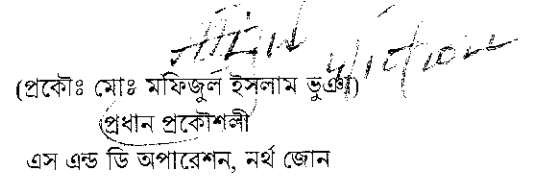 (প্রকৌঃ মোঃ মফিজুল ইসলাম ভূঞা)
প্রধান প্রকৌশলী
এস এন্ড ডি অপারেশন, নর্থ জোন